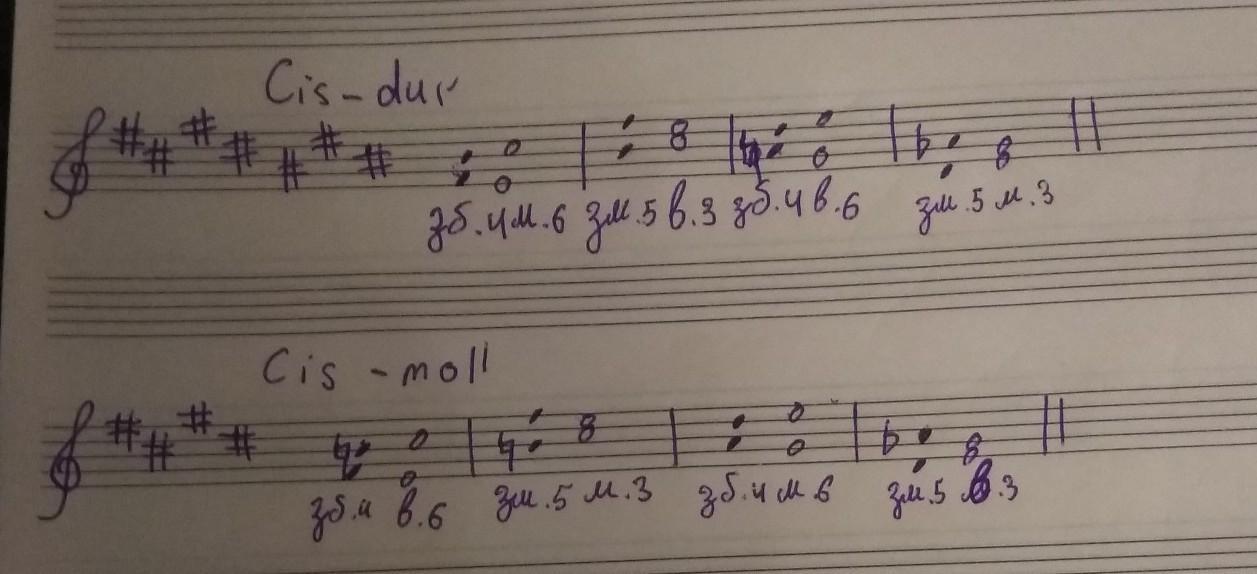 Cis-dur
зб.4 м.6 зм.5 в.3 зб.4 в.6 зм.5 м.3
Cis-moll
зб.4 в.6 зм.5 м.3 зб.4 м.6 зм.5 в.3